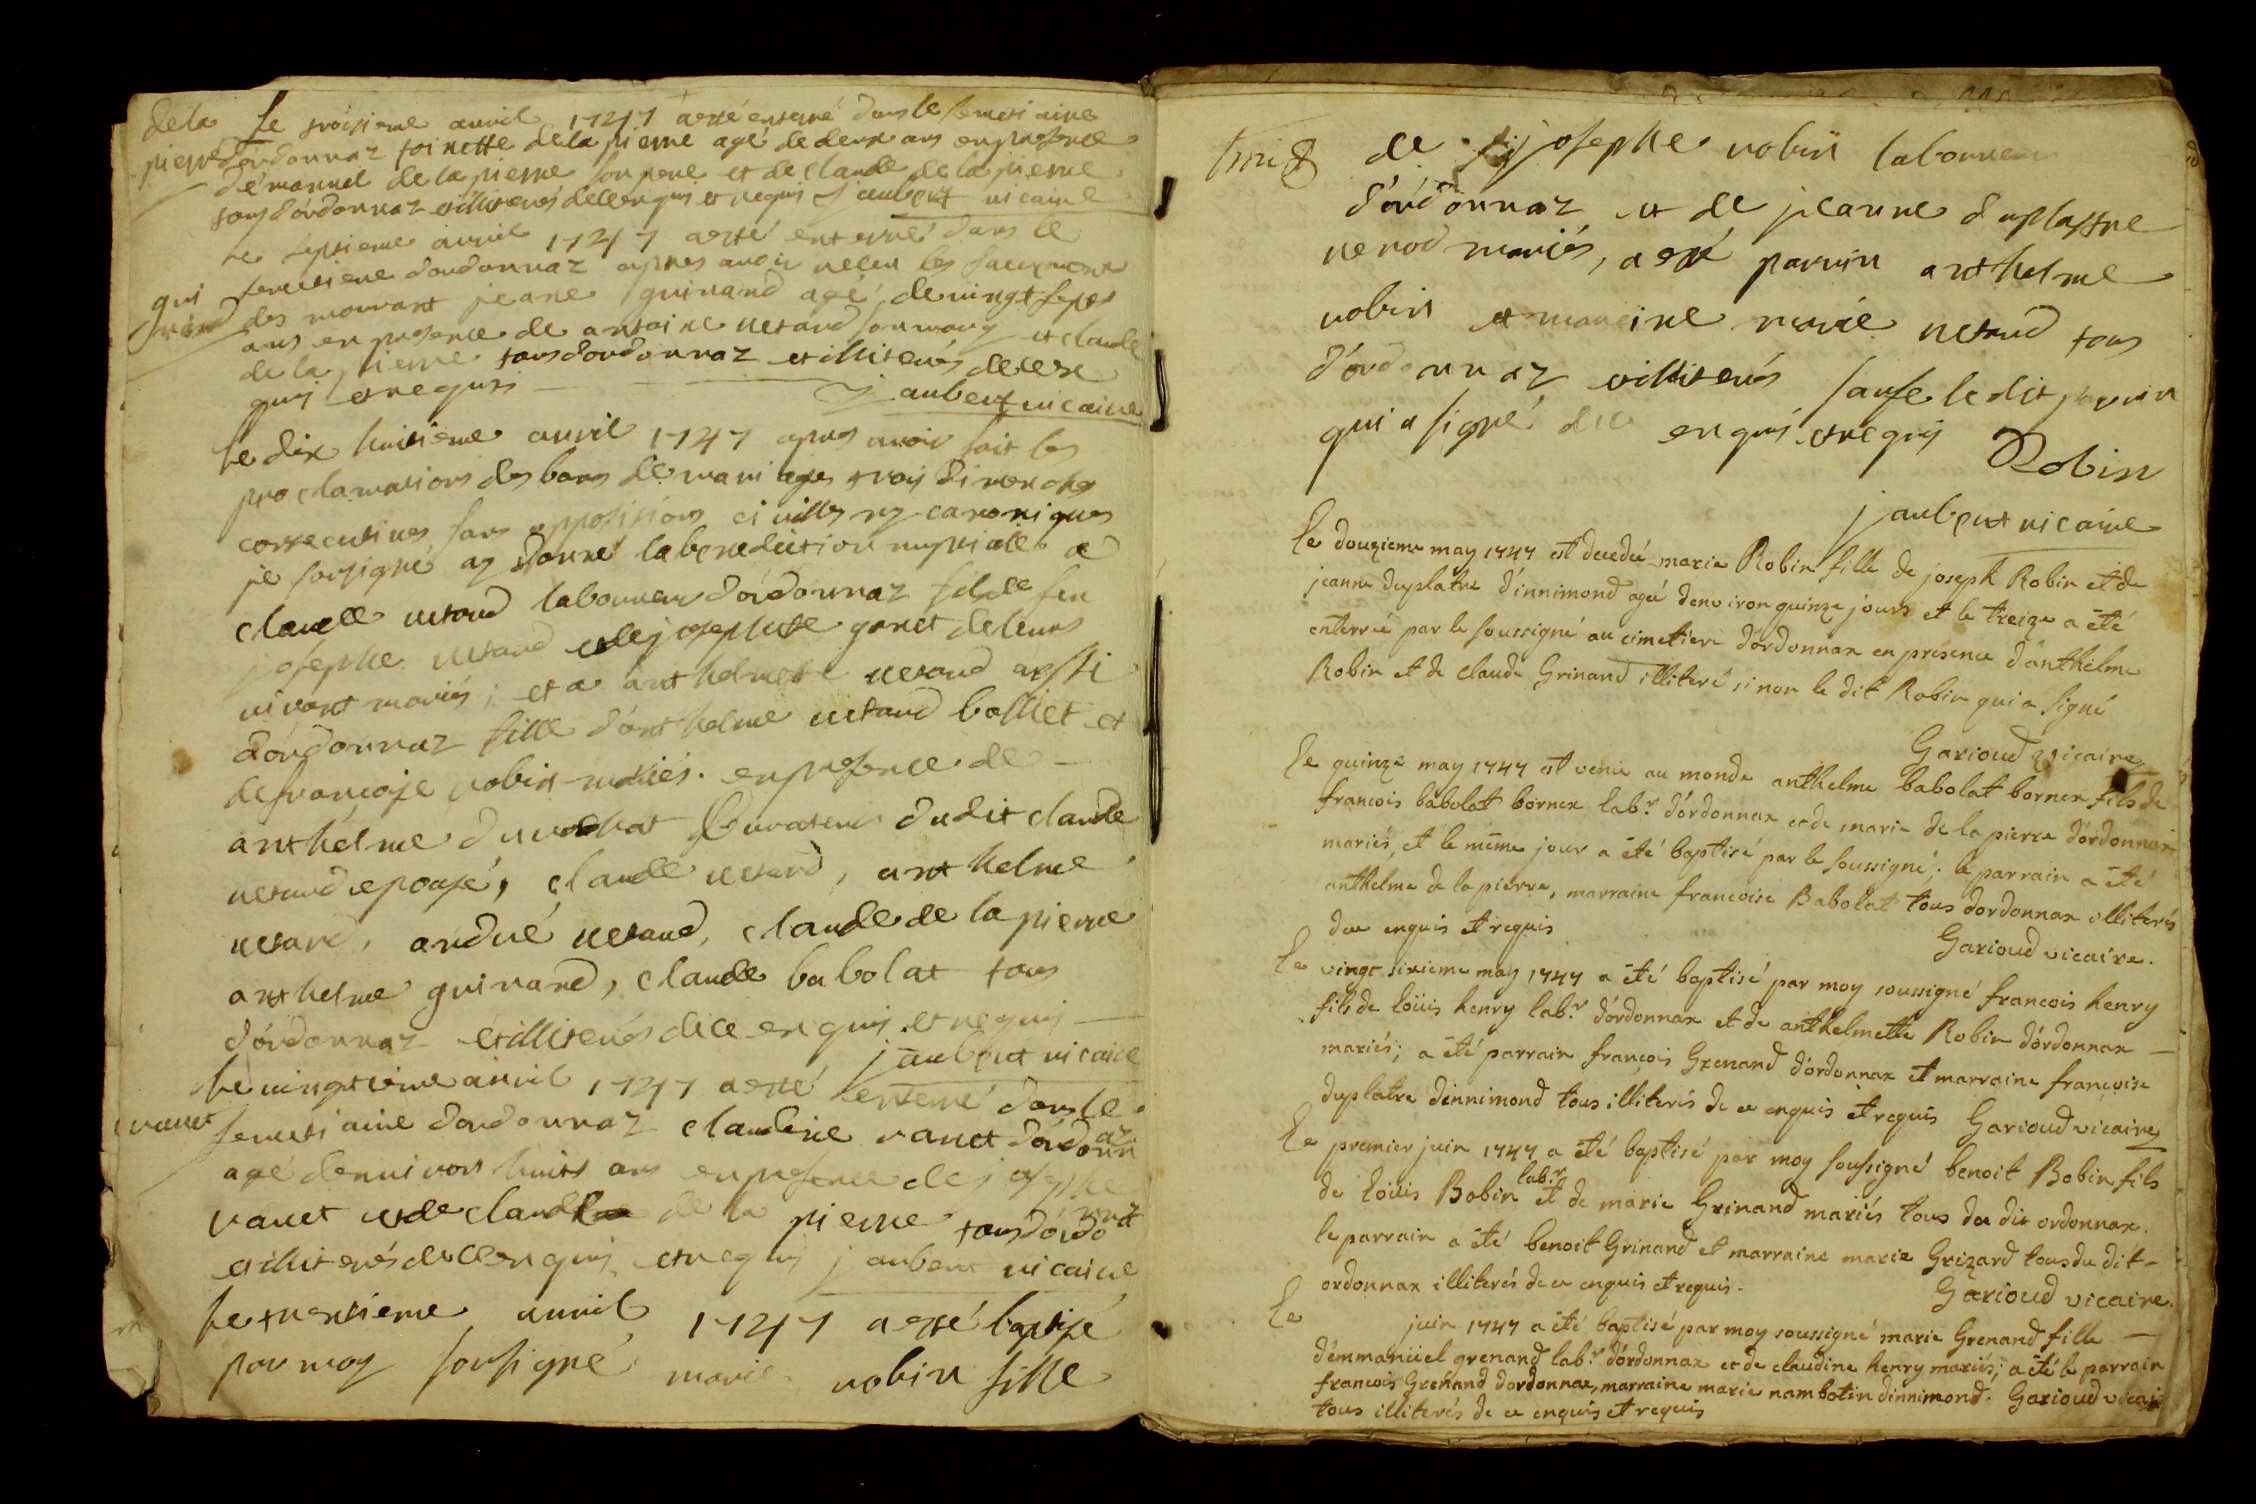 de la
pierre
Le troisieme avril 1747 a esté enterré dans le semetiaire
d'ordonnaz toinette de la pierre agé de deux ans en presence
d'emanuel de la pierre son pere et de claude de la pierre
tous d'ordonnaz et illiterés de ce enquis et requis jaubert vicaire
gui
nand
le septieme avril 1747 a esté enterré dans le
semetiere d'ordonnaz apres avoir receu les sacrement
des mourant jeane guinand agé de vingt sept
ans en presence de antoine uetard son mary et claude
de la pierre tous d'ordonnaz et illiterés de ce en
quis et requis jaubert vicaire
le dix huitieme avril 1747 apres avoir fait les
proclamations des bans de mariages trois dimenches
consecutives sans oppositions civilles ny canoniques
je sousigné ay donné la benediction nuptialle a
claude uetard laboureur d'ordonnaz fils de feu
josephe uetard et de josephette ganet de leurs
vivant mariés ; et a anthelmette uetard aussi
d'ordonnaz fille d'anthelme uetard bolliet et
de françoise robin mariés. en presence de
anthelme Curateur du dit claude
uetard epousé, claude uetard, anthelme
uetard, andré uetard, claude de la pierre
anthelme guinand, claude babolat tous
d'ordonnaz et illiterés de ce enquis et requis
jaubert vicaire
vanet
le vingtieme avril 1747 a esté enterré dans le
semetiaire d'ordonnaz claudine vanet d'ordonnaz
agé d'environ huit ans en presence de josephe
vanet et de claude de la pierre tous d'ordonnaz
et illiterés de ce enquis et requis jaubert vicaire
le trentieme avril 1747 a esté baptisé
par moy sousigné marie robin fille
de josephe robin laboureur
d'ordonnaz et de jeanne duplastre
renod mariés, a esté parrin anthelme
robin et mareine marie uetard tous
d'ordonnaz et illiterés saufe le dit parrin
qui a signé de ce enquis et requis
Robin
jaubert vicaire
Le douzieme may 1747 est decedée marie Robin fille de joseph Robin et de
jeanne duplatre d'innimond agé d'environ quinze jours et le treize a été
enterrée par le soussigné au cimetiere d'ordonnax en présence d'anthelme
Robin et de claude Grinand illiteré sinon le dit Robin qui a signé
Garioud vicaire
Le quinze may 1747 est venu au monde anthelme babolat borner fils de
francois babolat borner lab.r d'ordonnax et de marie de la pierre d'ordonnax
mariés, et le même jour a été baptisé par le soussigné ; le parrain a été
anthelme de la pierre, marraine francoise Babolat tous dordonnax illiterés
de ce enquis et requis
Garioud vicaire.
Le vingt sixieme may 1747 a été baptisé par moy soussigné francois henry
fils de loüis henry lab.r d'ordonnax et de anthelmette Robin d'ordonnax
mariés ; a été parrain françois Grenand d'ordonnax et marraine françoise
duplatre dinnimond tous illiterés de ce enquis et requis Garioud vicaire
Le premier juin 1747 a été baptisé par moy sousigné benoit Robin fils
de loüis Robin lab.r et de marie Grinand mariés tous du dit ordonnax.
le parrain a été benoit Grinand et marraine marie Grizard tous du dit
ordonnax illiterés de ce enquis et requis.
Garioud vicaire.
Le juin 1747 a été baptisé par moy soussigné marie Grenand fille
d'emmanüel grenand lab.r d'ordonnax et de claudine henry mariés ; a été le parrain
francois Grenand dordonnax, marraine marie nambotin dinnimond. Garioud vicai
tous illiterés de ce enquis et requis